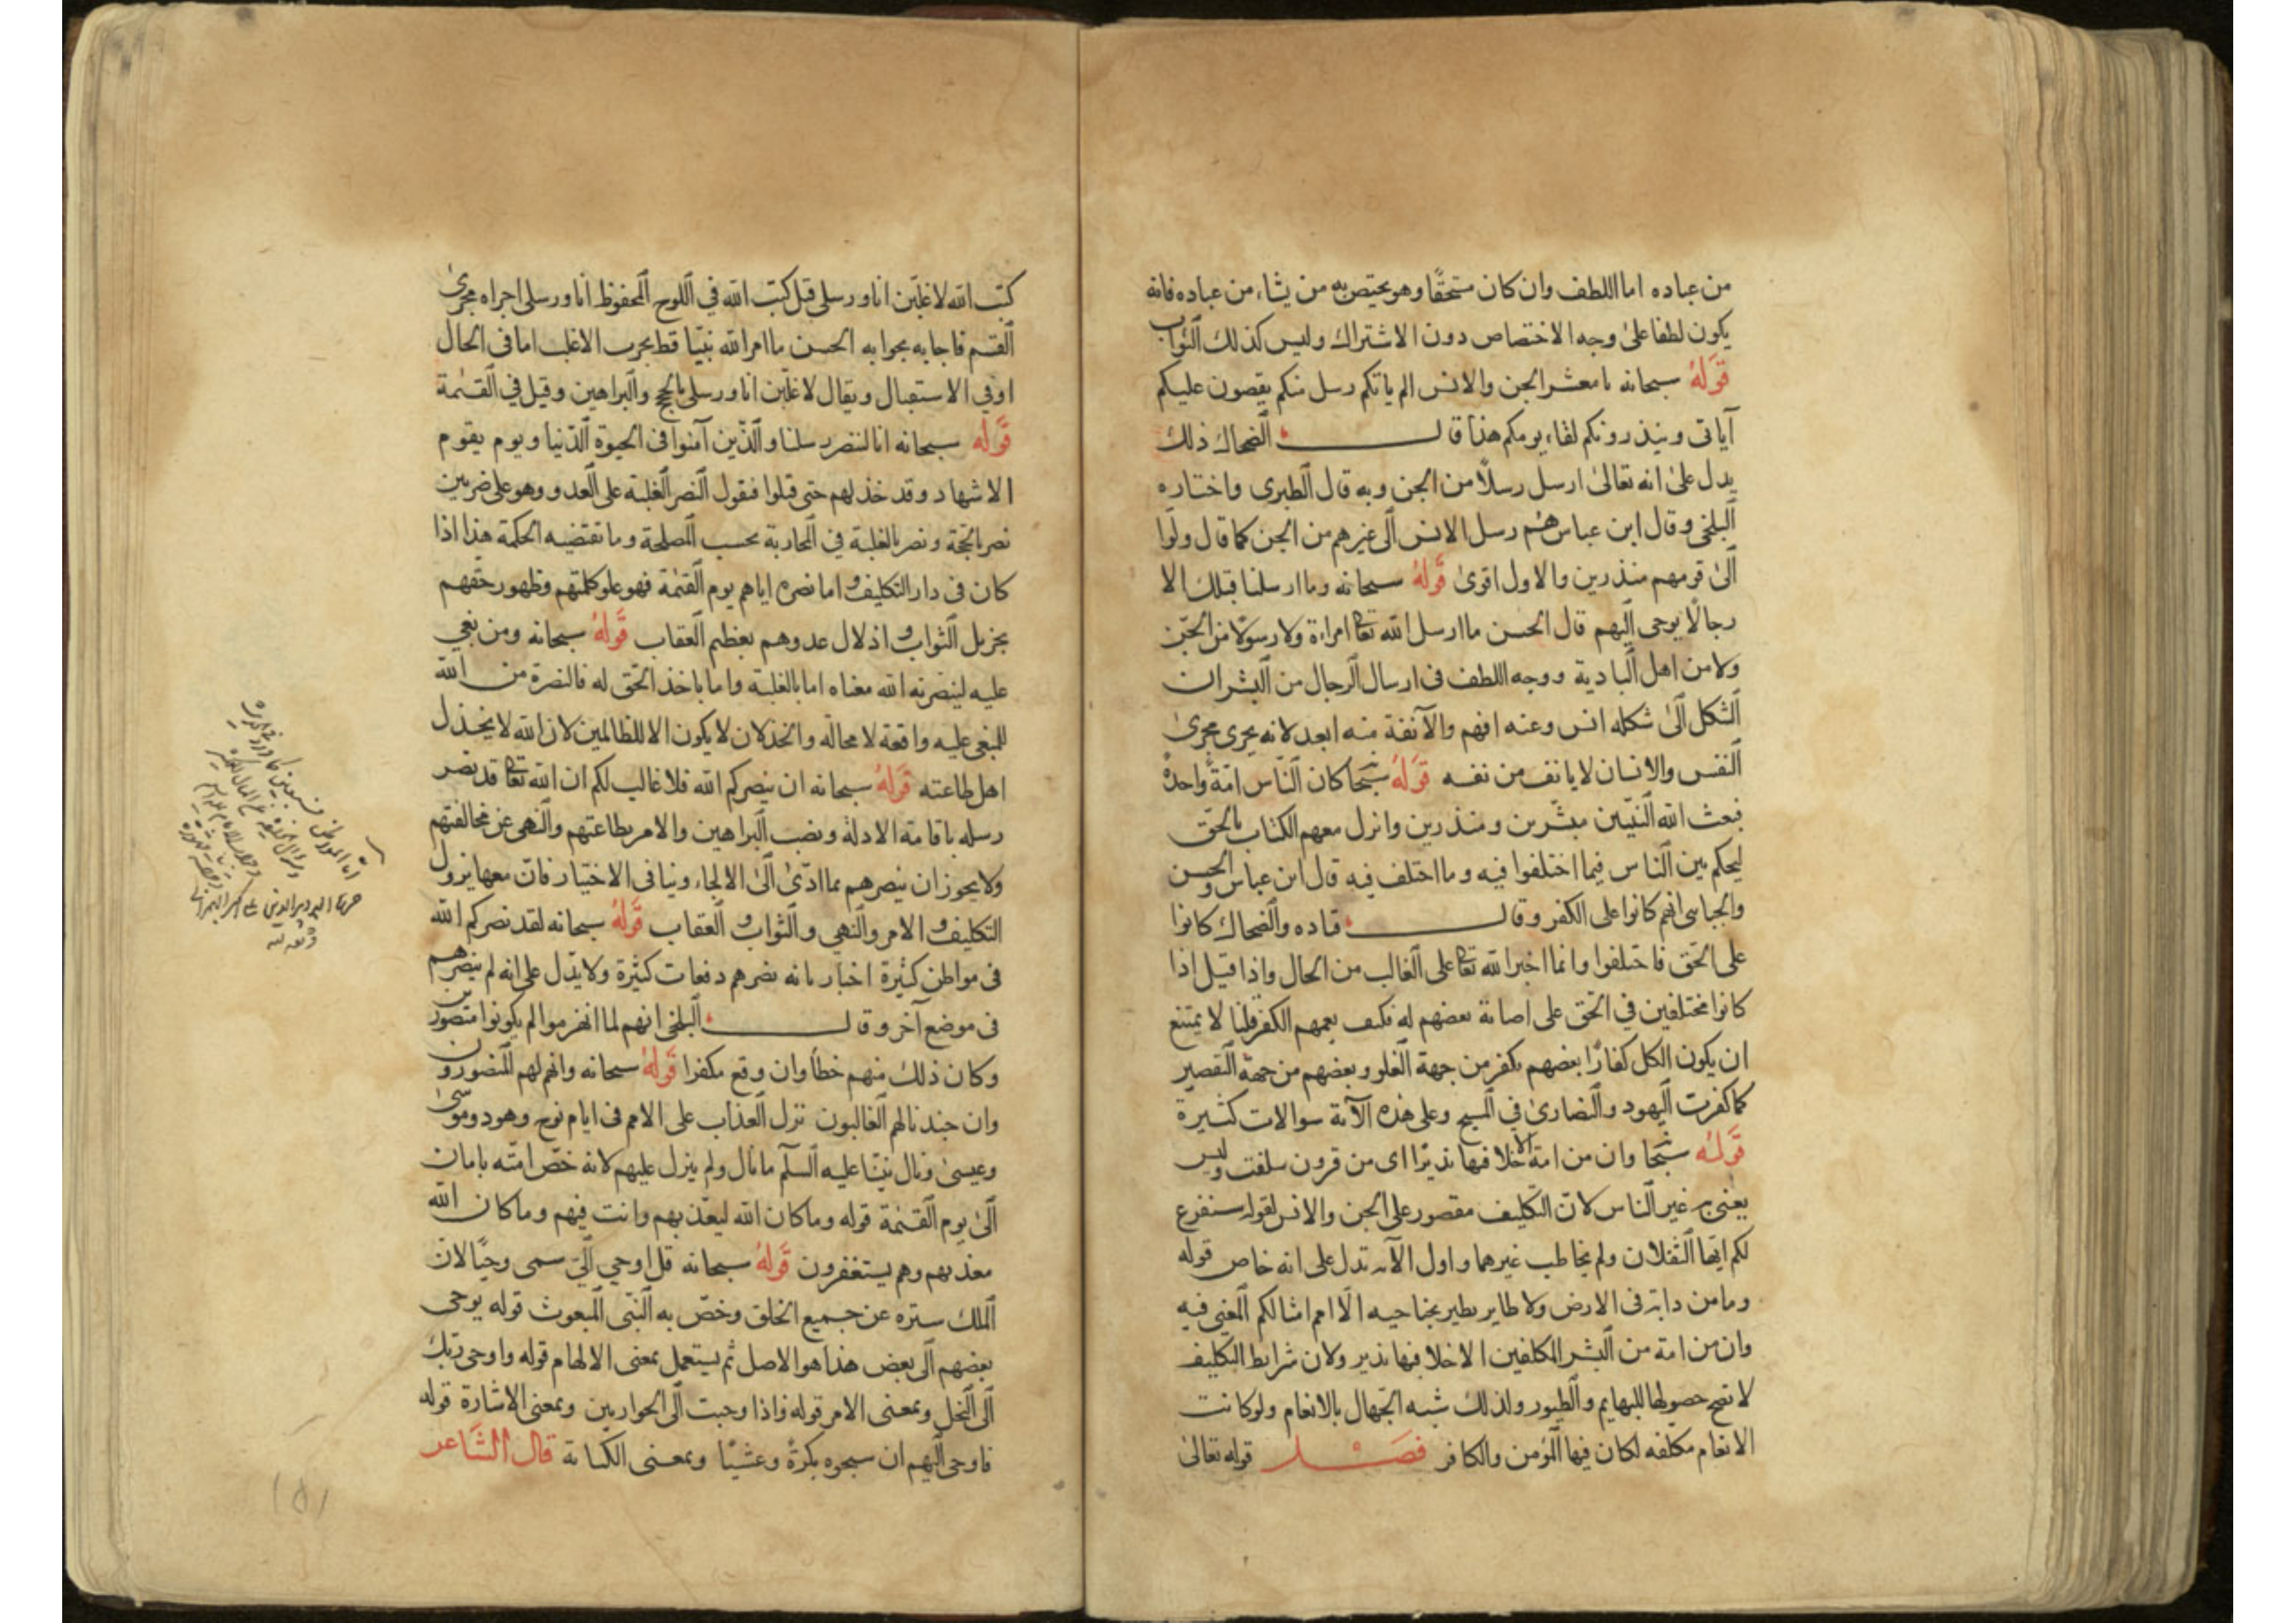 من عباده اما اللطف وان كان مستحقًا وهو يختص به من يشاء من عباده فانه
يكون لطفا على وجه الاختصاص دون الاشتراك وليس كذلك الثواب
قوله سبحانه يا معشر الجن والانس الم ياتكم رسل منكم يقصون عليكم
آياتى وينذرونكم لقاء يومكم هذا قال الضحاك ذلك
يدل على انه تعالى ارسل رسلاً من الجن وبه قال الطبرى واختاره
البلخى وقال ابن عباس هم رسل الانس الى غيرهم من الجن كما قال ولّوا
الى قومهم منذرين والاول اقوى قوله سبحانه وما ارسلنا قبلك الا
رجالًا يوحى اليهم قال الحسن ما ارسل الله تعا امراءة ولا رسولًا من الجنّ
ولا من اهل البادية ووجه اللطف فى ارسال الرجال من البشر ان
الشكل الى شكله انس وعنه افهم والآنفة منه ابعد لانه يجرى مجرى
النفس والانسان لا يانف من نفسه قوله سبحا كان النّاس امّةً واحدةً
فبعث الله النبيّين مبشّرين ومنذرين وانزل معهم الكتاب بالحق
ليحكم بين الناس فيما اختلفوا فيه وما اختلف فيه قال ابن عباس والحسن
والجبايى انهم كانوا على الكفر وقال قتاده والضحاك كانوا
على الحق فاختلفوا وانما اخبر الله تعا على الغالب من الحال واذا قيل اذا
كانوا مختلفين في الحق على اصابة بعضهم له فكيف يعمهم الكفر قلنا لا يمتنع
ان يكون الكل كفارًا بعضهم يكفر من جهة الغلو وبعضهم من جهة التقصير
كما كفرت اليهود والنصارىٰ في المسيح وعلى هذه الآية سوالات كثيرة
قوله سبحا وان من امة الا خلا فيها نذيرًا اى من قرون سلفت وليس
يعنى به غير الناس لانّ التكليف مقصور على الجن والانس لقوله سنفرغ
لكم ايّها الثقلان ولم يخاطب غيرهما واول الآية تدل على انه خاص قوله
وما من دابة فى الارض ولا طاير يطير بجناحيه الّا امم امثالكم المعنى فيه
وان من امة من البشر المكلفين الا خلا فيها نذير ولان شرايط التكليف
لا تصح حصولها للبهايم والطيور ولذلك شبه الجهال بالانعام ولو كانت
الانعام مكلفه لكان فيها المؤمن والكافر فصل قوله تعالىٰ
كتب الله لاغلبّن انا ورسلى قيل كتب الله في اللوح المحفوظ انا ورسلى اجراه مجرىٰ
القسم فاجابه بجوابه الحسن ما امر الله نبيّا قط بحرب الا غلب اما فى الحال
او في الاستقبال ويقال لاغلبّن انا ورسلى بالحجج والبراهين وقيل في القيٰمة
قوله سبحانه انا لننصر رسلنا والّذين آمنوا فى الحيوة الدّنيا ويوم يقوم
الاشهاد وقد خذلهم حتى قتلوا فنقول النصر الغلبة على العدو وهو على ضربين
نصر بالحجة ونصر بالغلبة في المحاربة بحسب المصلحة وما تقتضيه الحكمة هذا اذا
كان فى دار التكليف واما نصره اياهم يوم القيٰمة فهو علو كلمتهم وظهور حقهم
بجزيل الثواب واذلال عدوهم بعظيم العقاب قوله سبحانه ومن بغي
عليه لينصرنه الله معناه اما بالغلبة واما باخذ الحق له فالنصرة من الله
للمبغى عليه واقعة لا محالة والخذلان لا يكون الا للظالمين لان الله لا يخذل
اهل طاعته قوله سبحانه ان ينصركم الله فلا غالب لكم ان الله تعا قد نصر
رسله باقامة الادلة ونصب البراهين والامر بطاعتهم والنهى عن مخالفتهم
ولا يجوز ان ينصرهم بما ادّى الى الالجاء وينافى الاختيار فانّ معها يزول
التكليف والامر والنهي والثواب والعقاب قوله سبحانه لقد نصركم الله
فى مواطن كثيرة اخبار بانه نصرهم دفعات كثيرة ولا يدّل على انه لم ينصرهم
فى موضع آخر وقال البلخى انهم لما انهزموا لم يكونوا منصورين
وكان ذلك منهم خطأ وان وقع مكفرا قوله سبحانه وانهم لهم المنصورون
وان جندنا لهم الغالبون نزل العذاب على الامم فى ايام نوح وهود وموسى
وعيسى ونال نبيّنا عليه السلم ما نال ولم ينزل عليهم لانه خصّ امته بامان
الى يوم القيٰمة قوله وما كان الله ليعذبهم وانت فيهم وما كان الله
معذبهم وهم يستغفرون قوله سبحانه قل اوحي الىّ سمى وحيًا لانّ
الملك ستره عن جميع الخلق وخصّ به النبّى المبعوث قوله يوحى
بعضهم الى بعض هذا هو الاصل ثم يستعمل بمعنى الالهام قوله واوحى ربك
الى النحل وبمعنى الامر قوله واذا وحيت الى الحواريين وبمعنى الاشارة قوله
فاوحى اليهم ان سبحوه بكرةً وعشيًّا وبمعنى الكتابة قال الشاعر